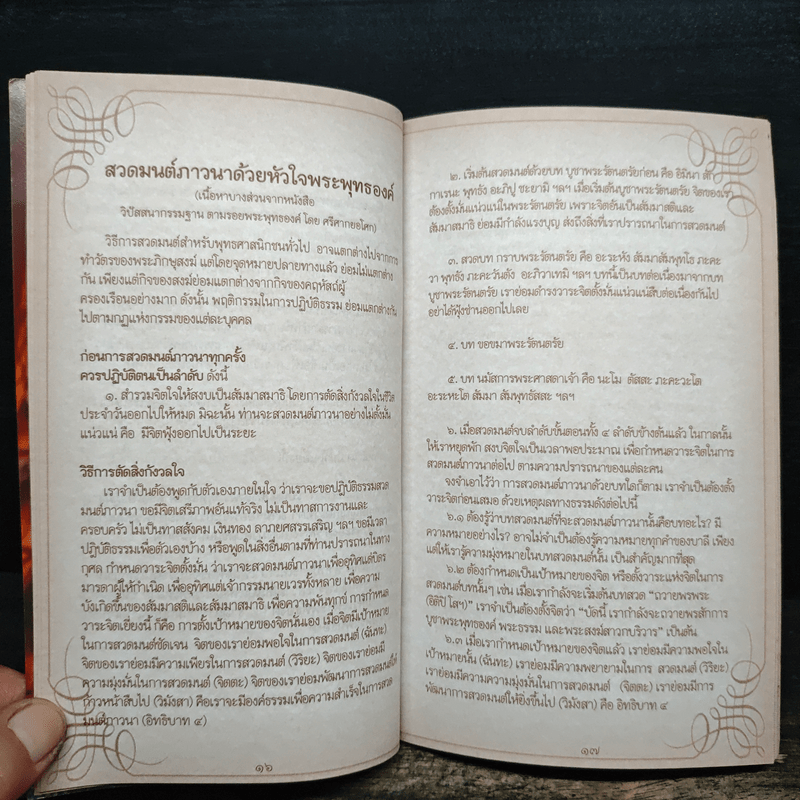 สวดมนต์ภาวนาด้วยหัวใจพระพุทธองค์
(เนื้อหาบางส่วนจากหนังสือ
วิปัสสนากรรมฐาน ตามรอยพระพุทธองค์ โดย ศรีศากยอโศก)
วิธีการสวดมนต์สำหรับพุทธศาสนิกชนทั่วไป อาจแตกต่างไปจากการ
ทำวัตรของพระภิกษุสงฆ์ แต่โดยจุดหมายปลายทางแล้ว ย่อมไม่แตกต่าง
กัน เพียงแต่กิจของสงฆ์ย่อมแตกต่างจากกิจของคฤหัสถ์ผู้
ครองเรือนอย่างมาก ดังนั้น พฤติกรรมในการปฏิบัติธรรม ย่อมแตกต่างกัน
ไปตามกฎแห่งกรรมของแต่ละบุคคล
ก่อนการสวดมนต์ภาวนาทุกครั้ง
ควรปฏิบัติตนเป็นลำดับ ดังนี้
๑. สำรวมจิตใจให้สงบเป็นสัมมาสมาธิ โดยการตัดสิ่งกังวลใจในชีวิต
ประจำวันออกไปให้หมด มิฉะนั้น ท่านจะสวดมนต์ภาวนาอย่างไม่ตั้งมั่น
แน่วแน่ คือ มีจิตฟุ้งออกไปเป็นระยะ
วิธีการตัดสิ่งกังวลใจ
เราจำเป็นต้องพูดกับตัวเองภายในใจ ว่าเราจะขอปฏิบัติธรรมสวด
มนต์ภาวนา ขอมีจิตเสรีภาพอันแท้จริง ไม่เป็นทาสการงานและ
ครอบครัว ไม่เป็นทาสสังคม เงินทอง ลาภยศสรรเสริญ ฯลฯ ขอมีเวลา
ปฏิบัติธรรมเพื่อตัวเองบ้าง หรือพูดในสิ่งอื่นตามที่ท่านปรารถนาในทาง
กุศล กำหนดจิตวาระตั้งมั่น ว่าเราจะสวดมนต์ภาวนาเพื่ออุทิศแต่บิดร
มารดาผู้ให้กำเนิด เพื่ออุทิศแต่เจ้ากรรมนายเวรทั้งหลาย เพื่อความ
บังเกิดขึ้นของสัมมาสติและสัมมาสมาธิ เพื่อความพ้นทุกข์ การกำหนด
วาระจิตเยี่ยงนี้ ก็คือ การตั้งเป้าหมายของจิตนั่นเอง เมื่อจิตมีเป้าหมาย
ในการสวดมนต์ชัดเจน จิตของเราย่อมพอใจในการสวดมนต์ (ฉันทะ)
จิตของเราย่อมมีความเพียรในการสวดมนต์ (วิริยะ) จิตของเราย่อมมี
ความมุ่งมั่นในการสวดมนต์ (จิตตะ) จิตของเราย่อมพัฒนาการสวดมนต์ให้
ก้าวหน้าสืบไป (วิมังสา) คือเราจะมีองค์ธรรมเพื่อความสำเร็จในการสวด
มนต์ภาวนา (อิทธิบาท ๔)
๑๖
๒. เริ่มต้นสวดมนต์ด้วยบท บูชาพระรัตนตรัยก่อน คือ อิมินา สัก
กาเรนะ พุทธัง อะภิปู ชะยามิ ฯลฯ เมื่อเริ่มต้นบูชาพระรัตนตรัย จิตของเรา
ต้องตั้งมั่นแน่วแน่ในพระรัตนตรัย เพราะจิตอันเป็นสัมมาสติและ
สัมมาสมาธิ ย่อมมีกำลังแรงบุญ ส่งถึงสิ่งที่เราปรารถนาในการสวดมนต์
๓. สวดบท กราบพระรัตนตรัย คือ อะระหัง สัมมาสัมพุทโธ ภะคะ
วา พุทธัง ภะคะวันตัง อะภิวาเทมิ ฯลฯ บทนี้เป็นบทต่อเนื่องมาจากบท
บูชาพระรัตนตรัย เราย่อมดำรงวาระจิตตั้งมั่นแน่วแน่สืบต่อเนื่องกันไป
อย่าได้ฟุ้งซ่านออกไปเลย
๔. บท ขอขมาพระรัตนตรัย
๕. บท นมัสการพระศาสดาเจ้า คือ นะโม ตัสสะ ภะคะวะโต
อะระหะโต สัมมา สัมพุทธัสสะ ฯลฯ
๖. เมื่อสวดมนต์จบลำดับขั้นตอนทั้ง ๕ ลำดับข้างต้นแล้ว ในกาลนั้น
ให้เราหยุดพัก สงบจิตใจเป็นเวลาพอประมาณ เพื่อกำหนดวาระจิตในการ
สวดมนต์ภาวนาต่อไป ตามความปรารถนาของแต่ละคน
จงจำเอาไว้ว่า การสวดมนต์ภาวนาด้วยบทใดก็ตาม เราจำเป็นต้องตั้ง
วาระจิตก่อนเสมอ ด้วยเหตุผลทางธรรมดังต่อไปนี้
๖.๑ ต้องรู้ว่าบทสวดมนต์ที่จะสวดมนต์ภาวนานั้นคือบทอะไร? มี
ความหมายอย่างไร? อาจไม่จำเป็นต้องรู้ความหมายทุกคำของบาลี เพียง
แต่ให้เรารู้ความมุ่งหมายในบทสวดมนต์นั้น เป็นสำคัญมากที่สุด
๖.๒ ต้องกำหนดเป็นเป้าหมายของจิต หรือตั้งวาระแห่งจิตในการ
สวดมนต์บทนั้นๆ เช่น เมื่อเรากำลังจะเริ่มต้นบทสวด “ถวายพรพระ
(อิติปิ โสฯ)” เราจำเป็นต้องตั้งจิตว่า “บัดนี้ เรากำลังจะถวายพรสักการ
บูชาพระพุทธองค์ พระธรรม และพระสงฆ์สาวกบริวาร” เป็นต้น
๖.๓ เมื่อเรากำหนดเป้าหมายของจิตแล้ว เราย่อมมีความพอใจใน
เป้าหมายนั้น (ฉันทะ) เราย่อมมีความพยายามในการ สวดมนต์ (วิริยะ)
เราย่อมมีความความมุ่งมั่นในการสวดมนต์ (จิตตะ) เราย่อมมีการ
พัฒนาการสวดมนต์ให้ยิ่งขึ้นไป (วิมังสา) คือ อิทธิบาท ๔
๑๗